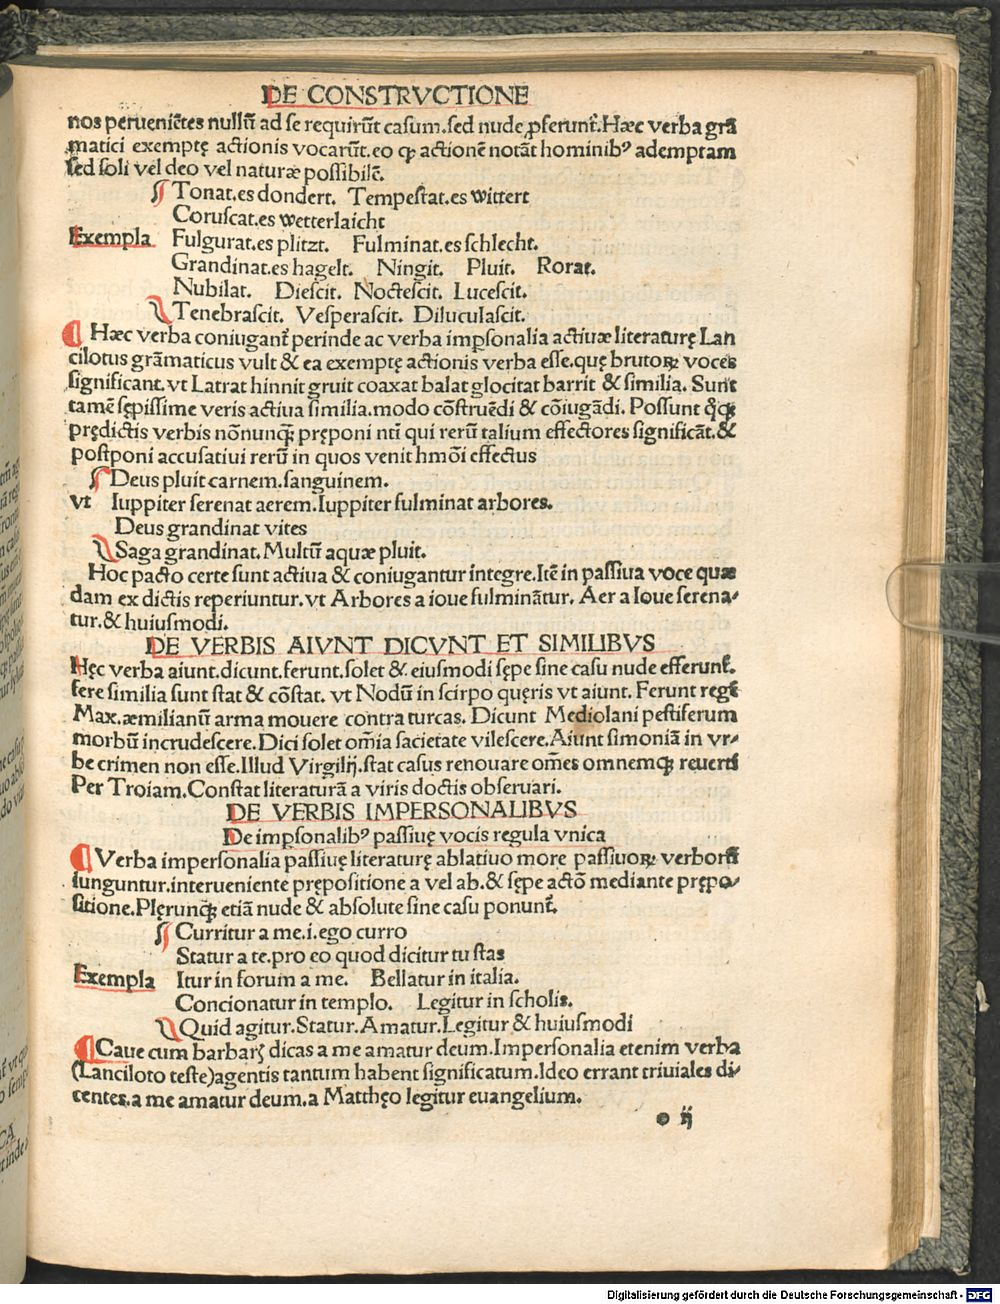 DE CONSTRVCTIONE
nos perueniētes nullū ad se requirūt casum.sed nude ꝓferunt᷑.Hæc verba grā
matici exemptę actionis vocarūt.eo ꝙ actionē notāt hominibꝰ ademptam
sed soli vel deo vel naturæ possibilē.
Tonat.es dondert. Tempestat.es wittert
Coruscat.es wetterlaicht
Exempla Fulgurat.es plitzt. Fulminat.es schlecht.
Grandinat.es hagelt. Ningit. Pluit. Rorat.
Nubilat. Diescit. Noctescit. Lucescit.
Tenebrascit. Vesperascit. Diluculascit.
Hæc verba coniugant᷑ perinde ac verba imꝑsonalia actiuæ literaturę Lan
cilotus grāmaticus vult & ea exemptę actionis verba esse.quę brutoꝝ voces
significant.vt Latrat hinnit gruit coaxat balat glocitat barrit & similia. Sunt
tamē sępissime veris actiua similia.modo cōstruēdi & cōiugādi. Possunt ꝗ̊qꝫ
prędictis verbis nōnunqꝫ pręponi ntī qui rerū talium effectores significāt.&
postponi accusatiui rerū in quos venit hmōi effectus
Deus pluit carnem.sanguinem.
vt Iuppiter serenat aerem.Iuppiter fulminat arbores.
Deus grandinat vites
Saga grandinat. Multū aquæ pluit.
Hoc pacto certe sunt actiua & coniugantur integre.Itē in passiua voce quæ
dam ex dictis reperiuntur.vt Arbores a ioue fulminātur. Aer a Ioue serena⸗
tur.& huiusmodi.
DE VERBIS AIVNT DICVNT ET SIMILIBVS
Hęc verba aiunt.dicunt.ferunt.solet & eiusmodi sępe sine casu nude efferunt᷑.
fere similia sunt stat & cōstat. vt Nodū in scirpo quęris vt aiunt. Ferunt regē
Max.æmilianū arma mouere contra turcas. Dicunt Mediolani pestiferum
morbū incrudescere.Dici solet om̄ia sacietate vilescere.Aiunt simoniā in vr⸗
be crimen non esse.Illud Virgilij.stat casus renouare om̄es omnemqꝫ reuerti
Per Troiam.Constat literaturā a viris doctis obseruari.
DE VERBIS IMPERSONALIBVS
De imꝑsonalibꝰ passiuę vocis regula vnica
Verba impersonalia passiuę literaturę ablatiuo more passiuoꝝ verborū
iunguntur.interueniente prępositione a vel ab.& sępe actō mediante prępo⸗
sitione.Plęrunqꝫ etiā nude & absolute sine casu ponunt᷑.
Curritur a me.i.ego curro
Statur a te.pro eo quod dicitur tu stas
Exempla Itur in forum a me. Bellatur in italia.
Concionatur in templo. Legitur in scholis.
Quid agitur.Statur.Amatur.Legitur & huiusmodi
Caue cum barbarꝭ dicas a me amatur deum.Impersonalia etenim verba
(Lanciloto teste)agentis tantum habent significatum.Ideo errant triuiales di⸗
centes.a me amatur deum.a Matthęo legitur euangelium.
o ij
Digitalisierung gefördert durch die Deutsche Forschungsgemeinschaft - DFG